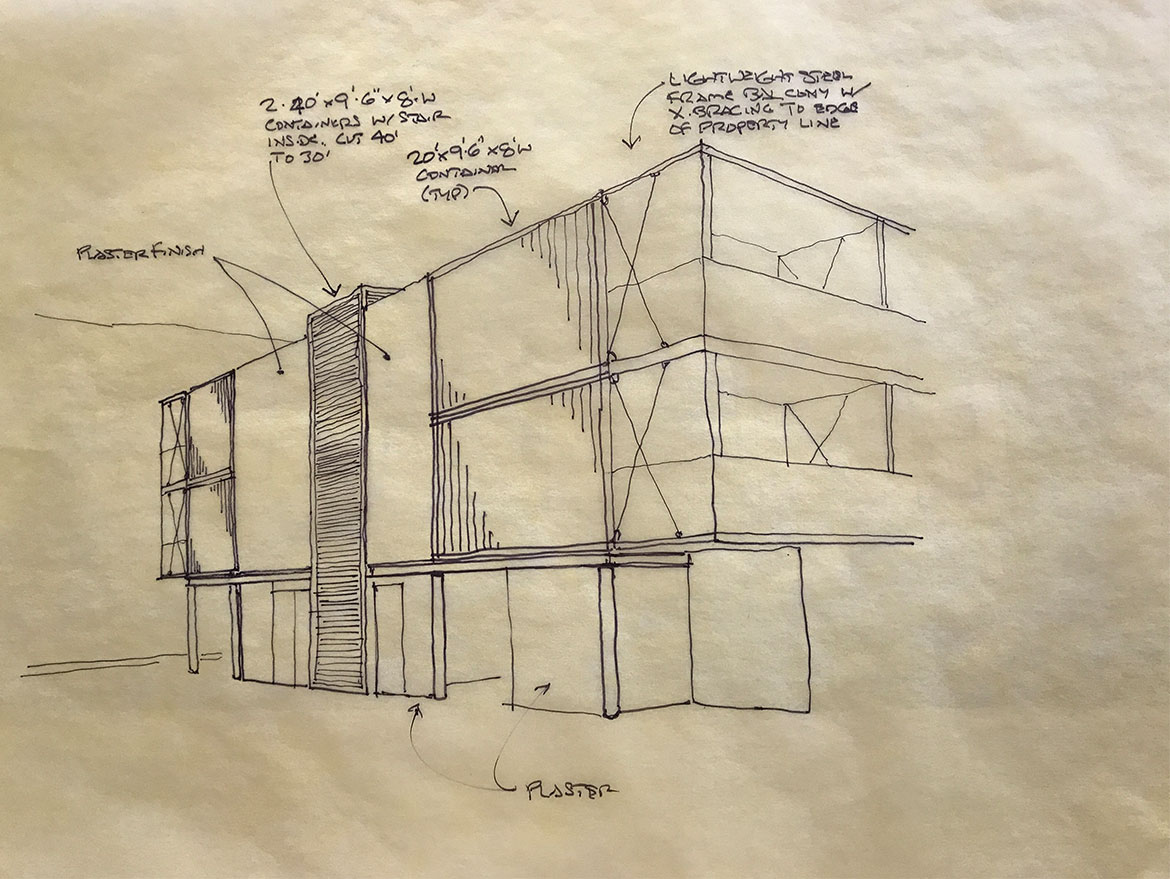 2·40'x9'·6"x8'·W
CONTAINERS W/ STAIR
INSIDE. CUT 40'
TO 30'
20'x9'·6"x8'W
CONTAINER
(TYP)
LIGHTWEIGHT STEEL
FRAME BALCONY W/
X·BRACING TO EDGE
OF PROPERTY LINE
PLASTER FINISH
PLASTER